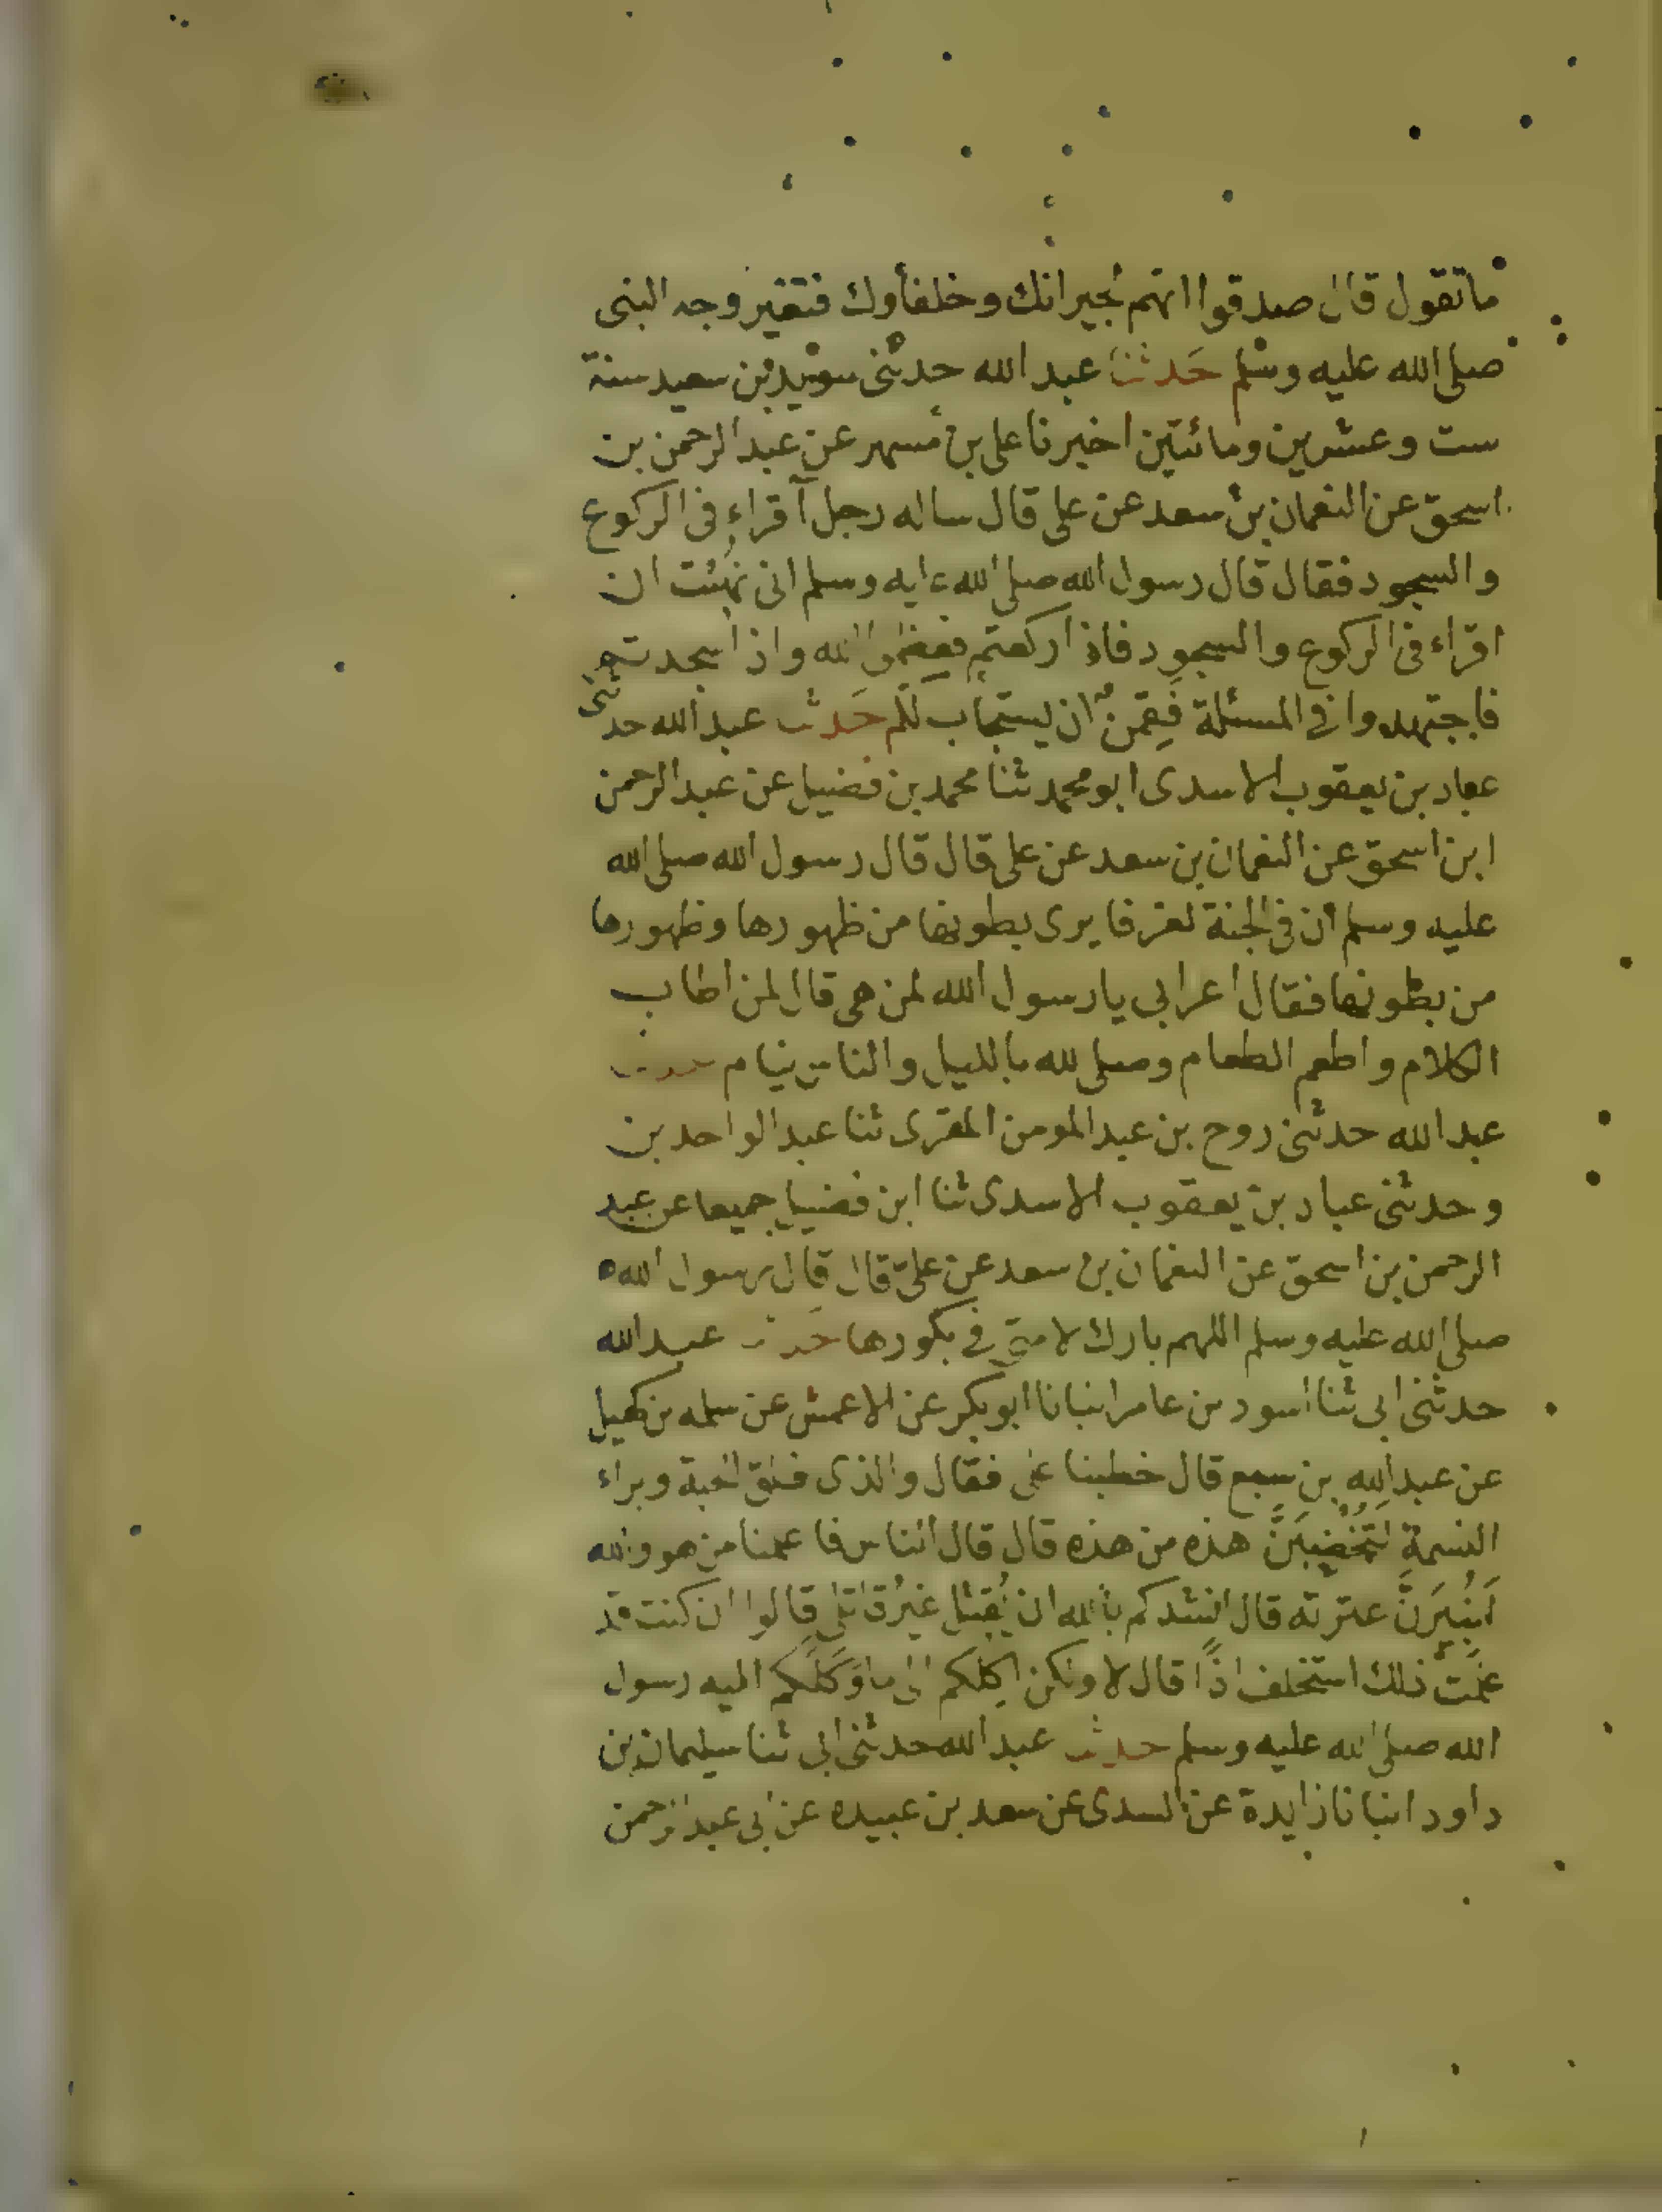 ما تقول قال صدقوا انهم لجيرانك وخلفاؤك فتغير وجه النبى
صلى الله عليه وسلم حَدثنا عبد الله حدثنى سويد بن سعيد سنة
ست وعشرين ومائتين اخبرنا على بن مسهر عن عبد الرحمن بن
اسحق عن النعمان بن سعد عن على قال ساله رجل آقراء فى الركوع
والسجود فقال قال رسول الله صلى الله عليه وسلم انى نهيت ان
اقراء فى الركوع والسجود فاذا ركعتم فعظموا الله واذا سجدتم
فاجتهدوا فى المسئلة فَقِمنٌ ان يستجاب لكم حَدثنا عبد الله حدثنى
عباد بن يعقوب الاسدى ابو محمد ثنا محمد بن فضيل عن عبد الرحمن
ابن اسحق عن النعمان بن سعد عن على قال قال رسول الله صلى الله
عليه وسلم ان فى الجنة لغرفا يرى بطونها من ظهورها وظهورها
من بطونها فقال اعرابى يا رسول الله لمن هى قال لمن اطاب
الكلام واطعم الطعام وصلى لله بالليل والناس نيام حدثنا
عبد الله حدثنى روح بن عبد المومن المقرى ثنا عبد الواحد بن
وحدثنى عباد بن يعقوب الاسدى ثنا ابن فضيل جميعا عن عبد
الرحمن بن اسحق عن النعمان بن سعد عن علىّ قال قال رسول الله
صلى الله عليه وسلم اللهم بارك لامتى فى بكورها حَدثنا عبد الله
حدثنى ابى ثنا اسود بن عامر انبانا ابو بكر عن الاعمش عن سلمه بن كهيل
عن عبد الله بن سبع قال خطبنا على فقال والذى فلق الحبة وبراء
النسمة لَتُخْضَبَنَّ هذه من هذه قال قال الناس فاعلمنا من هو والله
لَنُبِيرَنَّ عترته قال انشدكم بالله ان يُقتل غيرُ قاتلى قالوا ان كنت قد
علمتَ ذلك استخلف اذًا قال لا ولكن اَكِلكم الى ما وَكَلَكم اليه رسول
الله صلى الله عليه وسلم حدثنا عبد الله حدثنى ابى ثنا سليمان بن
داود انبانا زايدة عن السدى عن سعد بن عبيده عن ابى عبد الرحمن